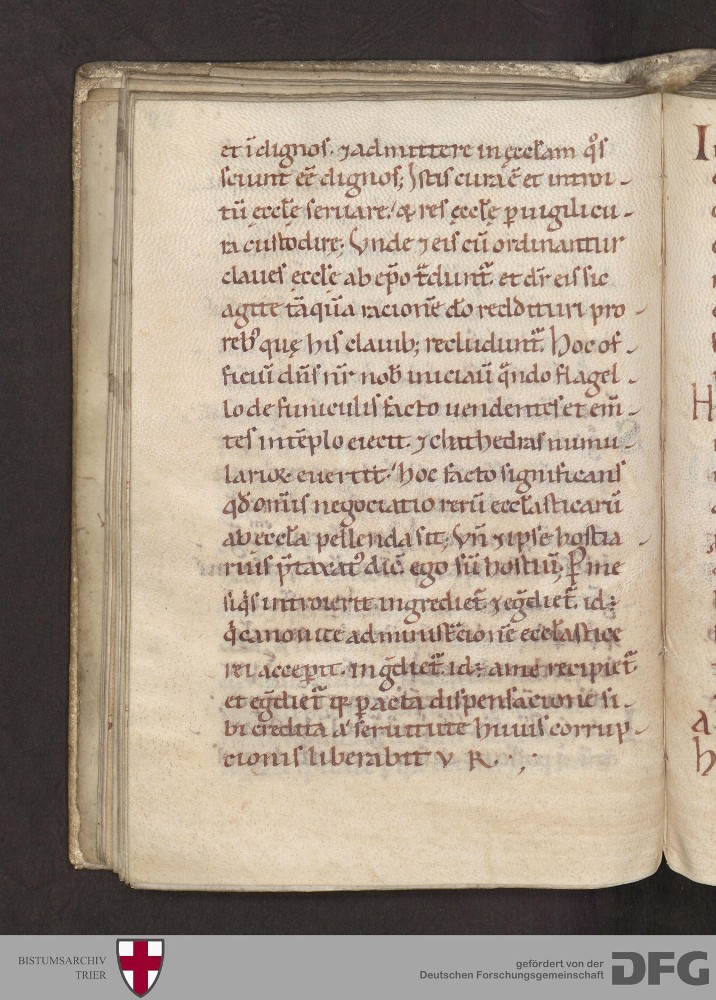 et īdignos. ⁊ admittere in ęccłam q̊s
sciunt eē dignos; Istis cura ē et introi-
tū ęccłe seruare. & res ęccłe ꝑuigili cu-
ra custodire; Vnde ⁊ eis cū ordinantur
claues ęccłe ab ep̄o t̄dunt᷑. et dr̄ eis sic
agite tāqua racionē dō reddituri pro
reb; quę his clauib; recludunt᷑. Hoc of-
ficiū dn̄s nr̄ nob̄ iniciauit qn̄do flagel-
lo de funiculis facto uendentes et em̄-
tes in tēplo eiecit. ⁊ chathedras numu-
larioꝝ euertit. hoc facto significans
qđ om̄is negociatio rerū ecclasticarū
ab eccła pellenda sit; Vn̄ ⁊ ipse hostia
rius p̄taxat᷒ dic̄. ego sū hostiū; Ꝑ me
siq̇s introierit. ingrediet᷑. ⁊ eg̃diet᷑. id÷
q̇ canonice administ̄cionē ecclastice
rei acceperit. ing̃diet᷑. id÷ a me recipiet᷑
et eg̃diet᷑ qꝛ ꝑacta dispensacione si-
bi credita a seruitute huius corrup-
cionis liberabit᷑ V R.
I
H
a
h
BISTUMSARCHIV
TRIER
gefördert von der
Deutschen Forschungsgemeinschaft
DFG